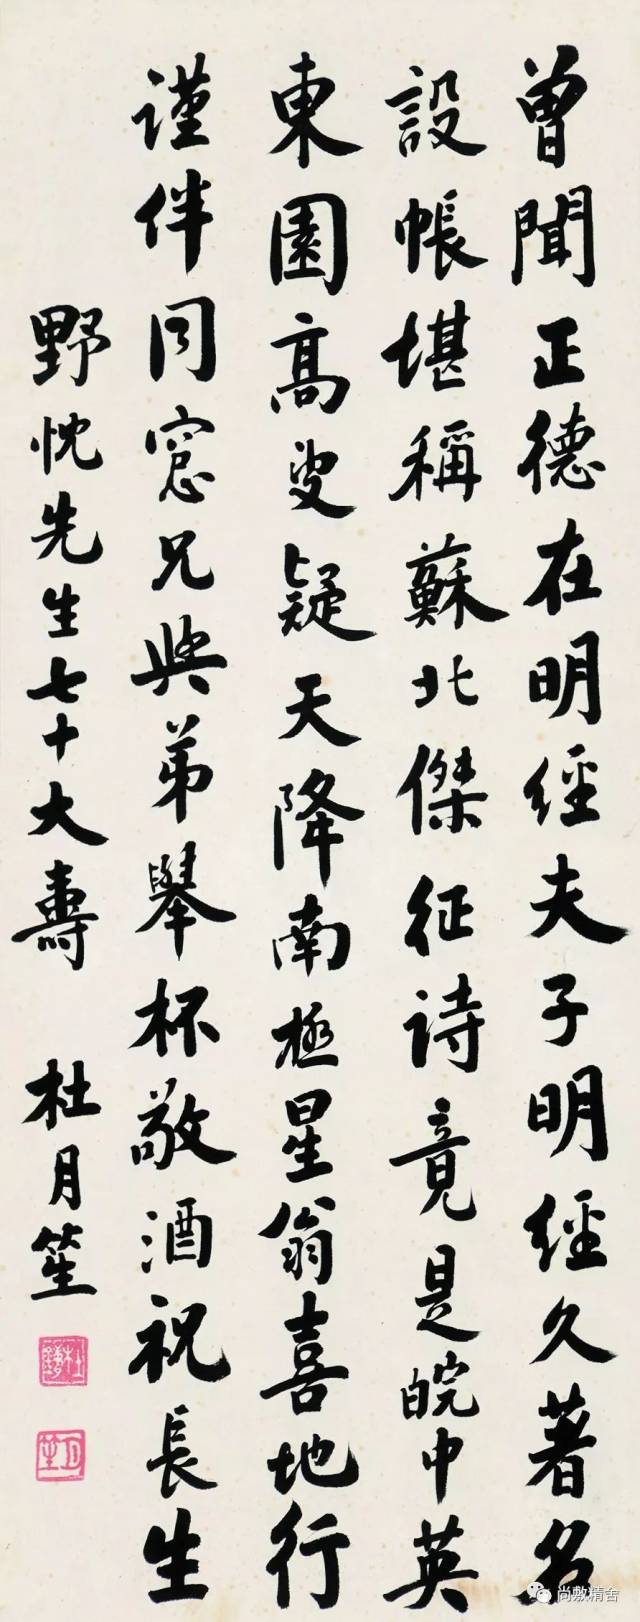 曾聞正德在明經夫子明經久著名
設帳堪稱蘇北傑征诗竟是皖中英
東園高叟疑天降南極星翁喜地行
謹伴同窓兄與弟舉杯敬酒祝長生
野忱先生七十大壽 杜月笙
杜鏞
月笙
尚敷精舍